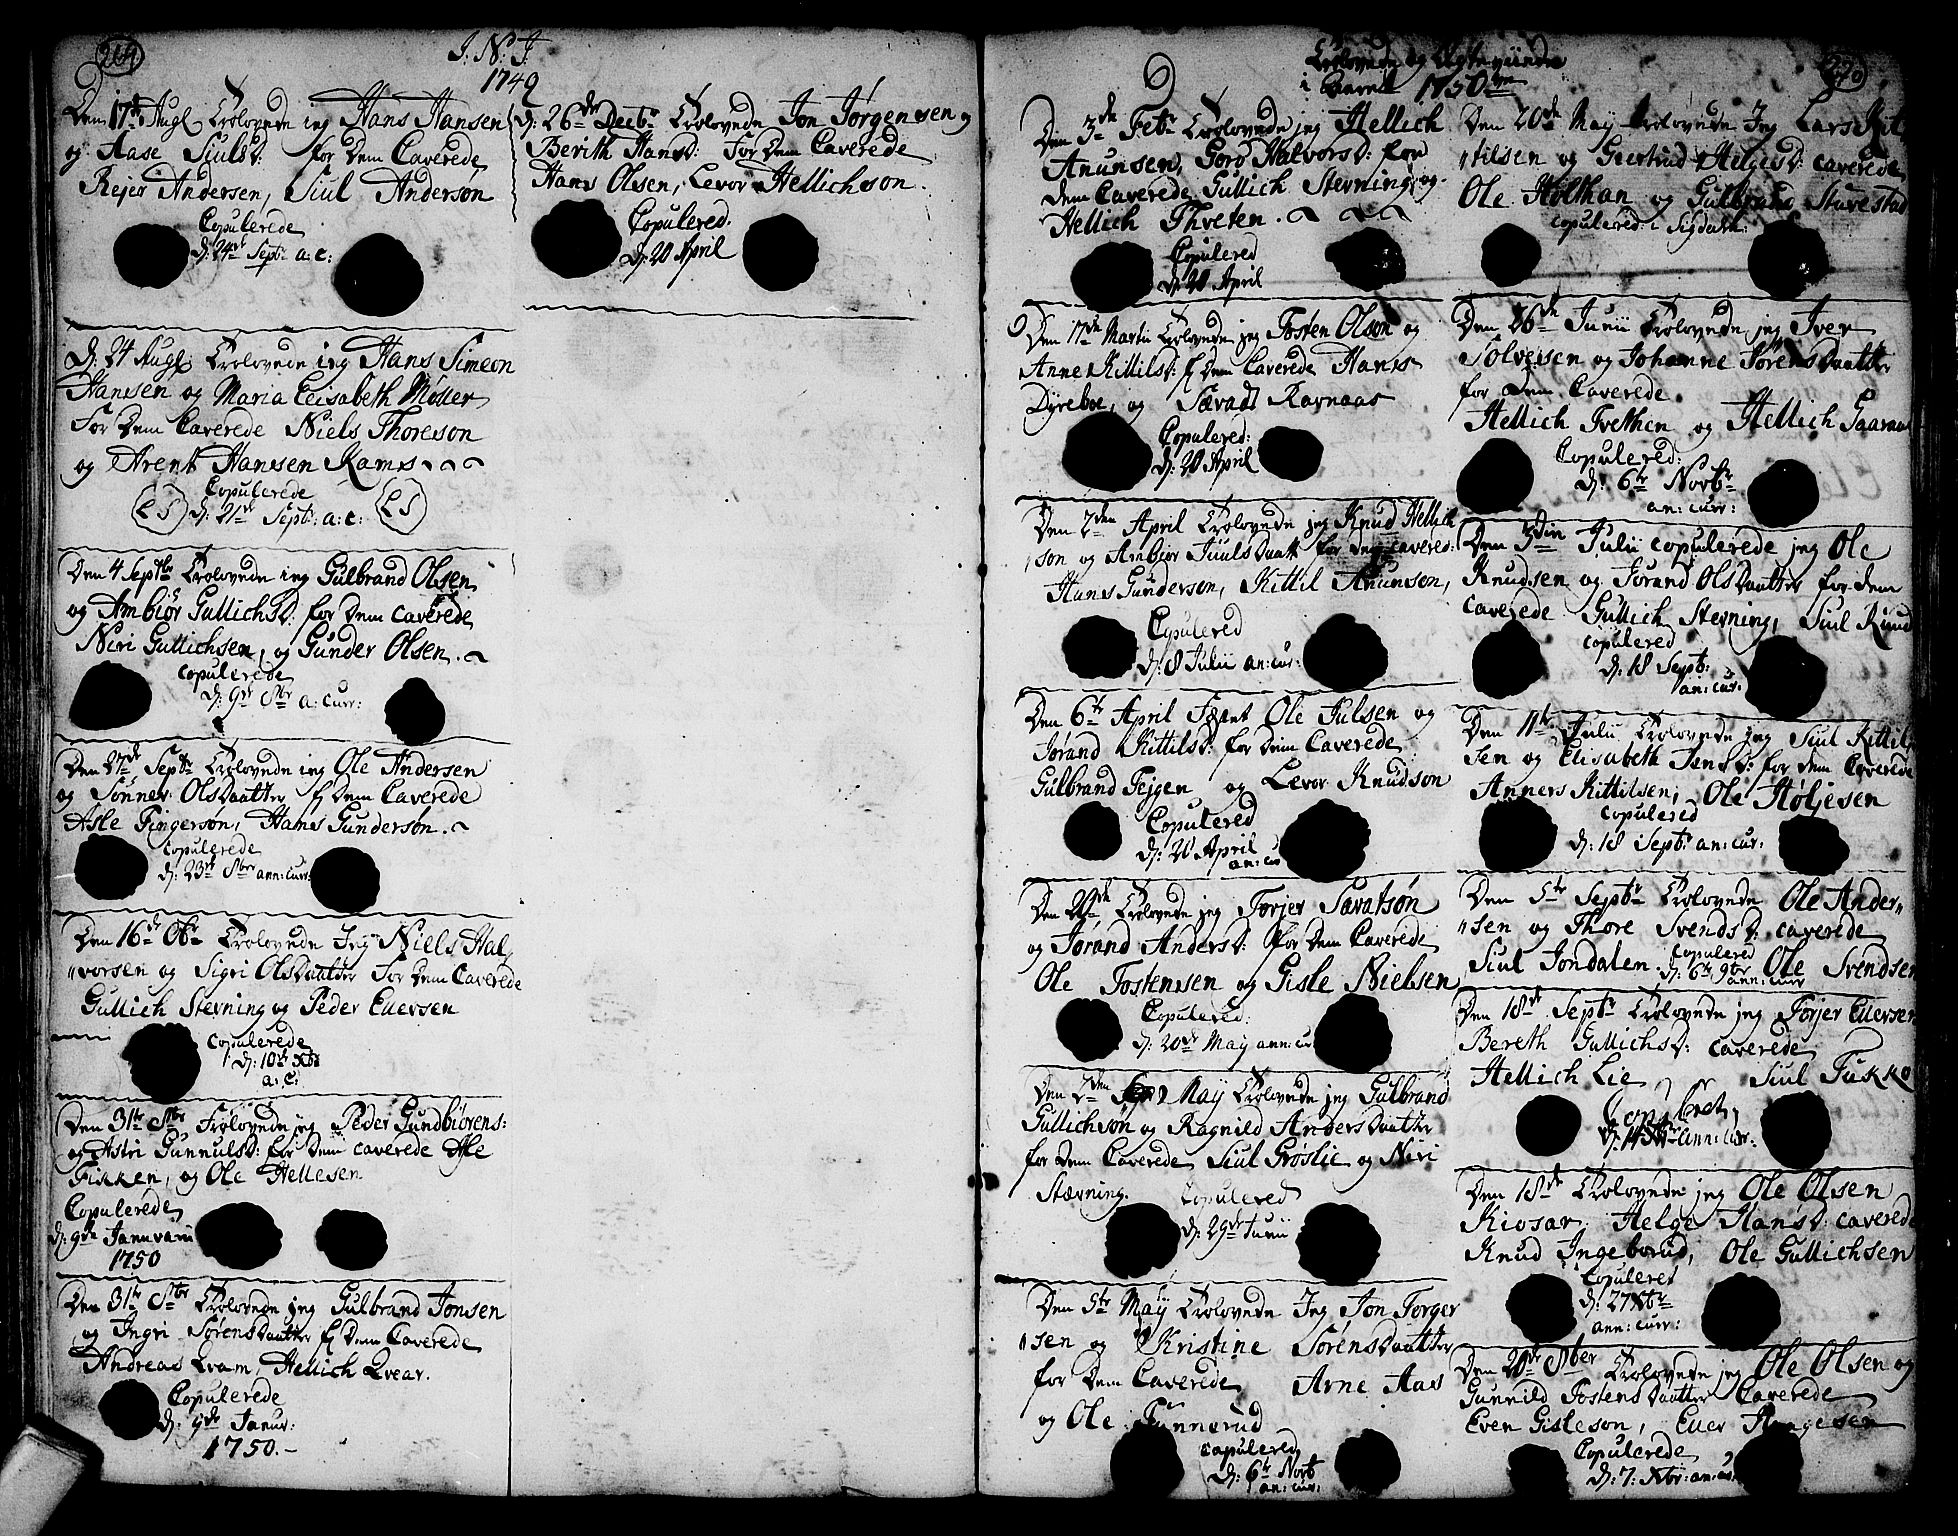 269
J. N. J.
1749
Den 17de Augl. Trolovede ieg Hans Hansen
og Aase Siulsd: for Dem Caverede
Rejer Andersen, Siul Andersøn
Copulerede
d: 24de Sept: a: c:
d: 24 Augl. Trolovede ieg Hans Simeon
Hansen og Maria Elisabeth Møller
For Dem Caverede Niels Thoreson
og Arent Hansen Kams
Copulerede
LS d: 21de Sept: a: c: LS
Den 4 Septbr Trolovede ieg Gulbrand Olsen
og Ambiør Gullichsd: for Dem caverede
Niri Gullichsen, og Gunder Olsen.
copulerede
d: 9de 8br a: curr:
Den 27de Septr Trolovede ieg Ole Andersen
og Sønnev Olsdaatter f Dem Caverede
Asle Fingerson, Hans Gundersøn.
copulerede
d: 23de 8br ann: curr:
Den 16de 8br Trolovede Jeg Niels Hal,
"vorsen og Sigri Olsdaatter For Dem Caverede
Gullich Sterning og Peder Euersen
Copulerede
d: 10de Xbr
a: c:
Den 31te 8br Trolovede jeg Peder Gundbiørens:
og Astri Gunnulsd: for Dem caverede Asle
Fikken, og Ole Hellesen
Copulerede
d: 9de Januarii
1750
Den 31te 8br Trolovede jeg Gulbrand Jonsen
og Ingri Sørensdaatter f Dem Caverede
Andreas Qvam, Hellich Qvear.
Copulerede
d: 9de Janur:
1750.
d: 26de Decbr Trolovede Jon Jørgensen og
Berith Hansd: For Dem Caverede
Hans Olsen, Levor Hellichson.
Copulered.
d: 20 April
Trolovede og Ægteviede
i Aaret 1750
270
Den 3de Febr Trolovede jeg Hellich
Anunsen, Goro Halvorsd: for
dem Caverede Gullich Sterning, og
Hellich Thveten.
Copulered
d: 20 April
Den 17de Martii Trolovede jeg Tosten Olson og
Anne Kittilsd: f Dem Caverede Hans
Dyreboe, og Sævadt Ravnaas
Copulered:
d: 20 April
Den 2den April Trolovede jeg Knud Hellich
"son og Ambiør Juulsdaatt for dem cavered:
Hans Gunderson, Kittil Anunson,
Copulered
d: 8 Julii an: cur:
Den 6te April Fæstet Ole Julsen og
Jørand Kittilsd: for Dem Caverede
Gulbrand Fejgen og Levor Knudson
Copulered
d: 20 April
an: cur
Den 29de Trolovede jeg Torjer Savatsøn
og Jørand Andersd: for Dem Caverede
Ole Tostensen og Gisle Nielsen
Copulered:
d: 20de May ann: cur
Den 2den May Trolovede jeg Gulbrand
Gullichsøn og Ragnild Andersdaatter
for Dem Caverede Siul Grøslie og Niri
Stærning.
Copulered
d: 29de Junii
Den 5te May Trolovede Jeg Jon Torger
"sen og Kristine Sørensdaatter
for Dem Caverede Arne Aas
og Ole Tunnerud
copulered
d: 6te Novb
an: cur:
Den 20de May Trolovede Jeg Lars Kit,
"tilsen og Geertrud Helgesd: caverede
Ole Holthan og Gulbrand Stuvestad
copulered: i Sigdahl:
Den 26de Junii Trolovede jeg Iver
Solvesen og Johanne Sørensdaatter
for Dem Caverede
Hellich Tvethen og Hellich Gaaraas
Copulered:
d: 6te Novbr
an: curr:
Den 3die Julii copulerede jeg Ole
Knudsen og Jørand Olsdaatter for dem
caverede Gullich Sterning, Siul Ruud
copulered
d: 18 Septb:
an: cur:
Den 11te Julii Trolovede jeg Siul Kittil,
sen og Elisabeth Jensd: for dem Caverede
Anners Kittilsen, Ole Høljesen
copulered
d: 18 Septb: an: cur:
Den 5te Septbr Trolovede Ole Ander"
"sen og Thore Svendsd: caverede
Siul Jondalen. Ole Svendsen
copulered
d: 6te 9br
ann: curr
Den 18de Septr Trolovede jeg Torjer Euersen
Bereth Gullichsd: caverede
Hellich Lie, Siul Fukko
ann: cur:
Den 18de Trolovede jeg Ole Olsen
Kiosar, Helge Hansd: caverede
Knud Ingeborud, Ole Gullichsen
Copuleret
d: 27 Xbr
ann: curr:
Den 20de 8ber Trolovede jeg Ole Olsen og
Gunnild Tostensdaatter Caverede
Even Gisleson, Euer Haagesen
Copulerede
d: 7: Xbr: an: c: